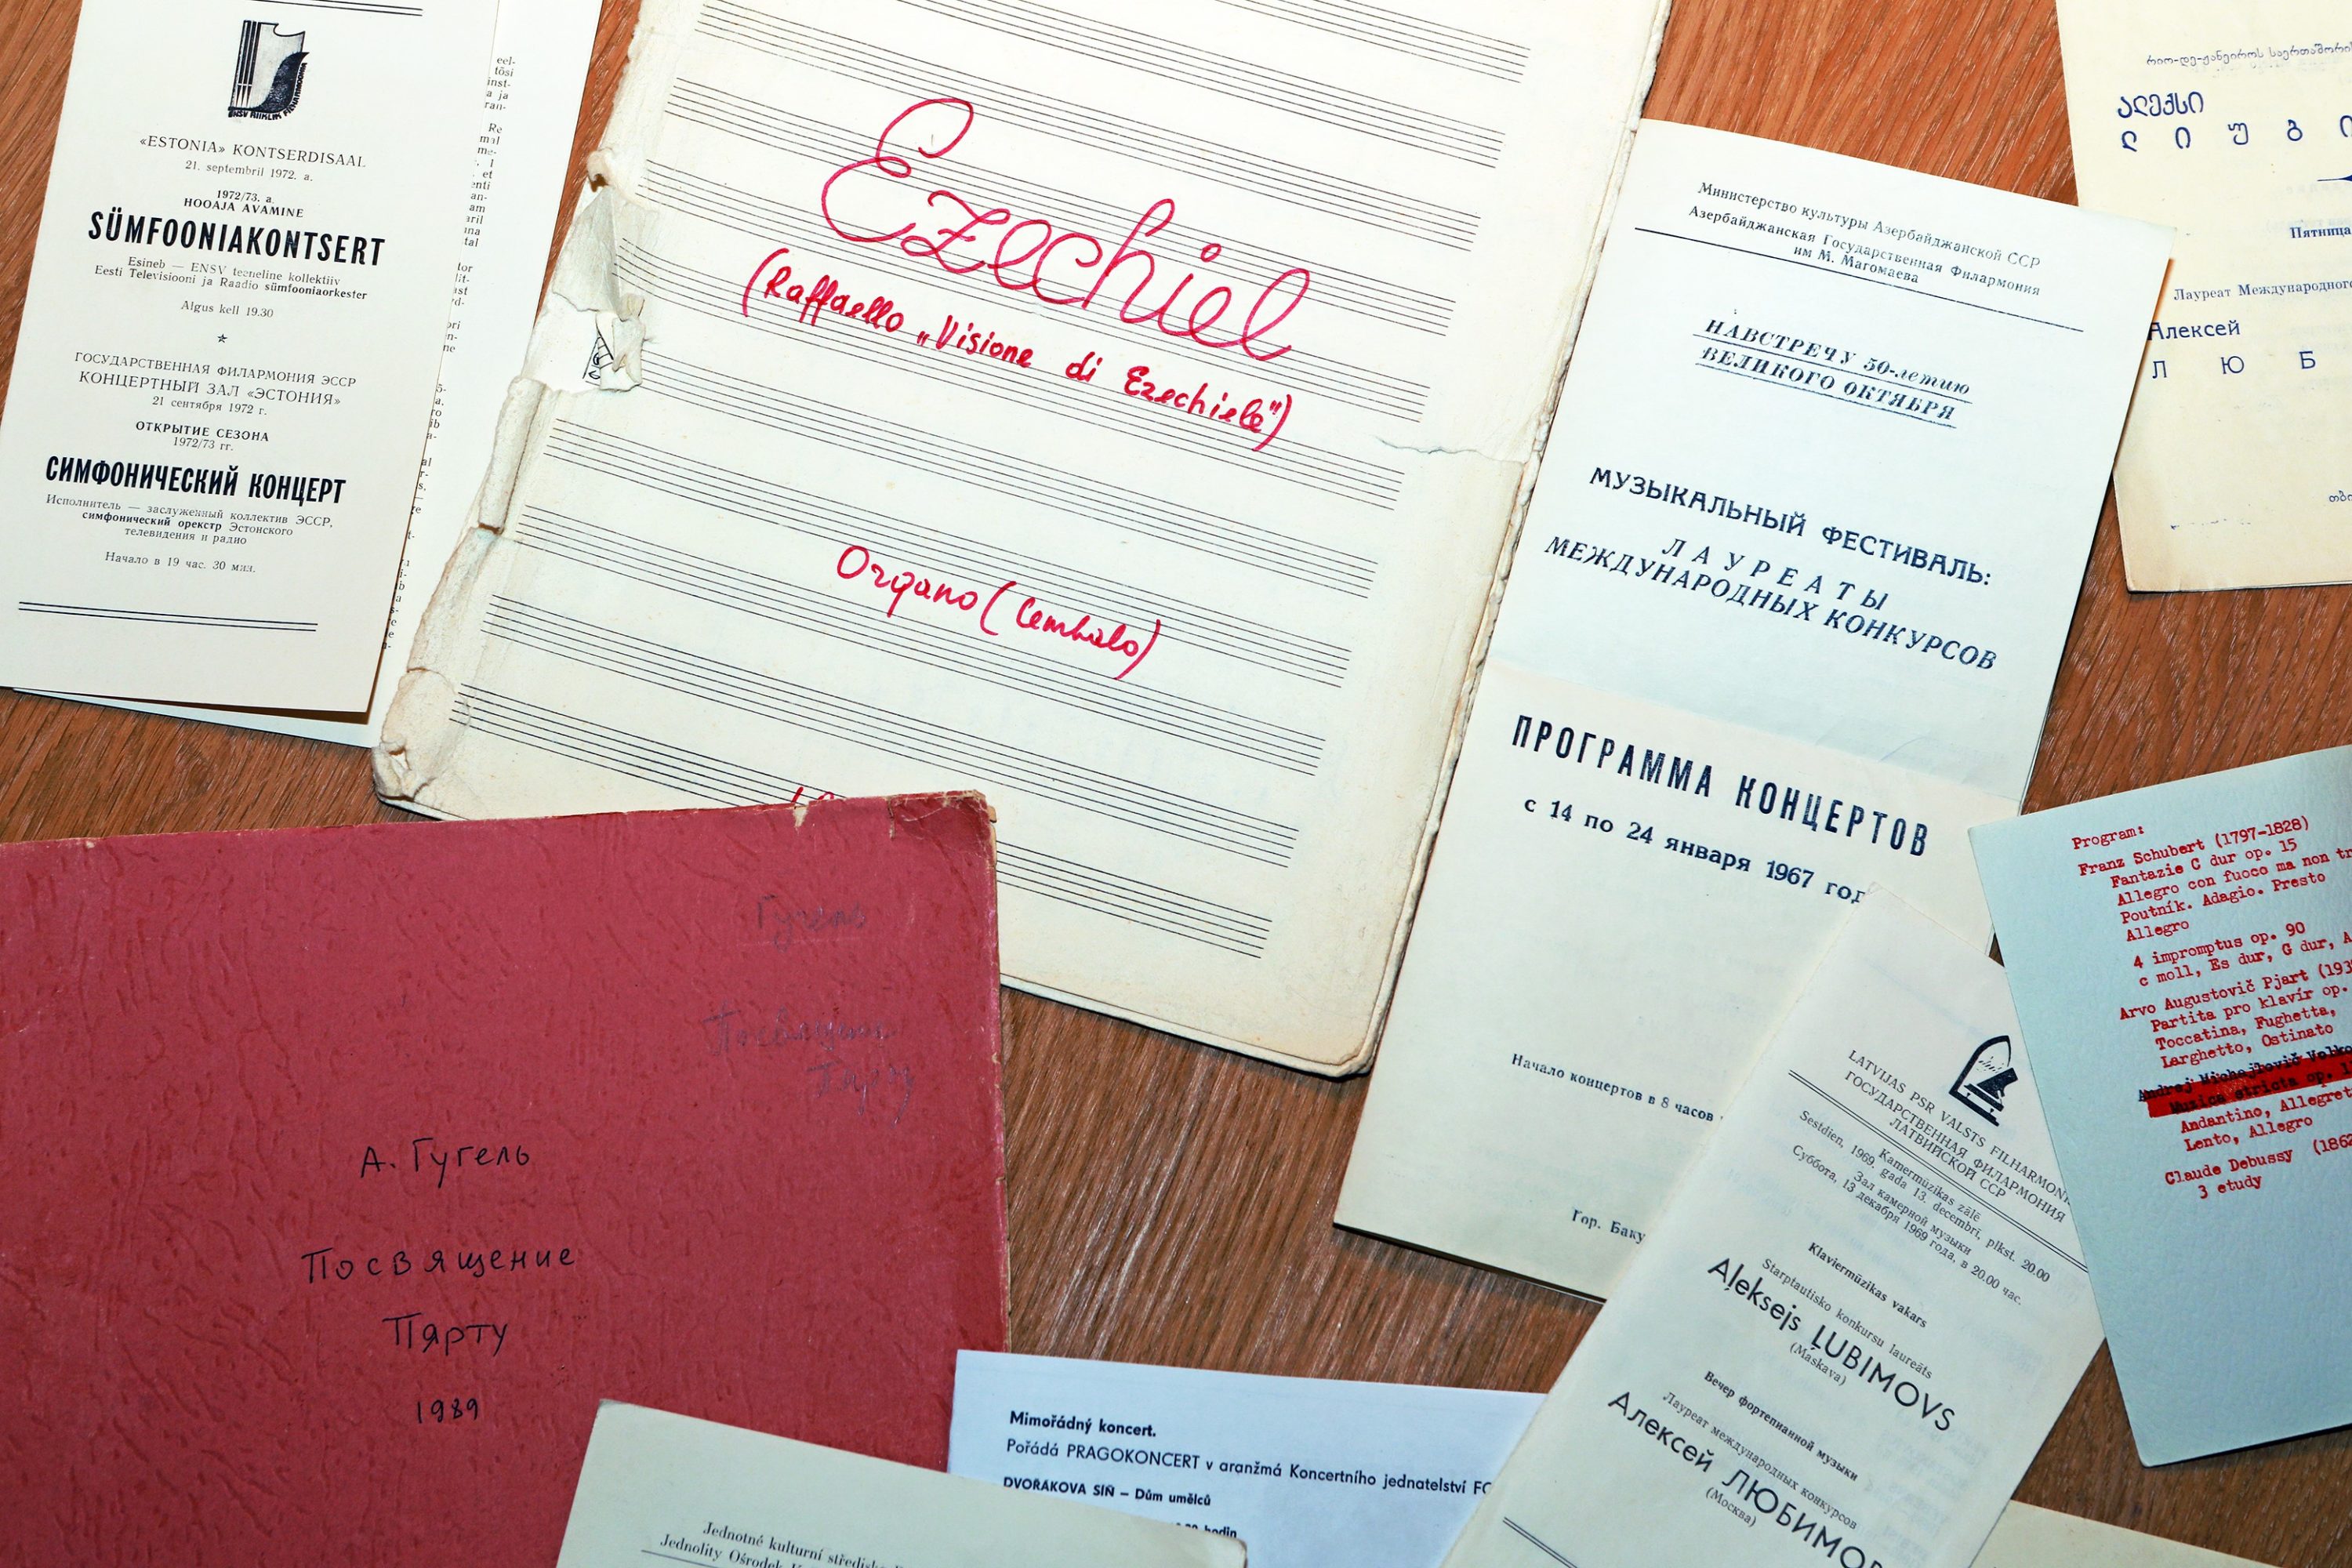 «ESTONIA» KONTSERDISAAL
21. septembril 1972. a.
1972/73. a.
HOOAJA AVAMINE
SÜMFOONIAKONTSERT
Esineb — ENSV teeneline kollektiiv
Eesti Televisiooni ja Raadio sümfooniaorkester
Algus kell 19.30
ГОСУДАРСТВЕННАЯ ФИЛАРМОНИЯ ЭССР
КОНЦЕРТНЫЙ ЗАЛ «ЭСТОНИЯ»
21 сентября 1972 г.
ОТКРЫТИЕ СЕЗОНА
1972/73 гг.
СИМФОНИЧЕСКИЙ КОНЦЕРТ
Исполнитель — заслуженный коллектив ЭССР,
симфонический орекстр Эстонского
телевидения и радио
Начало в 19 час. 30 мин.
Ezechiel
(Raffaello „Visione di Ezechiele")
Organo (Cembalo)
Министерство культуры Азербайджанской ССР
Азербайджанская Государственная Филармония
им М. Магомаева
НАВСТРЕЧУ 50-летию
ВЕЛИКОГО ОКТЯБРЯ
МУЗЫКАЛЬНЫЙ ФЕСТИВАЛЬ:
ЛАУРЕАТЫ
МЕЖДУНАРОДНЫХ КОНКУРСОВ
ПРОГРАММА КОНЦЕРТОВ
с 14 по 24 января 1967 год
Начало концертов в 8 часов
Гор. Баку
რიო-დე-ჟანეიროს საერთაშორი
ალექსი
ლ ი უ ბ ი
Пятница
Лауреат Международного
Алексей
Л Ю Б
Program:
Franz Schubert (1797-1828)
Fantazie C dur op. 15
Allegro con fuoco ma non tr
Poutník. Adagio. Presto
Allegro
4 impromptus op. 90
c moll, Es dur, G dur, A
Arvo Augustovič Pjart (193
Partita pro klavír op.
Toccatina, Fughetta,
Larghetto, Ostinato
Andrej Michajlovič Volko
Musica stricta op. 1
Andantino, Allegret
Lento, Allegro
Claude Debussy (1862
3 etudy
LATVIJAS PSR VALSTS FILHARMONI
ГОСУДАРСТВЕННАЯ ФИЛАРМОНИЯ
ЛАТВИЙСКОЙ ССР
Kamermūzikas zālē
Sestdien, 1969. gada 13. decembrī, plkst. 20.00
Зал камерной музыки
Суббота, 13 декабря 1969 года, в 20.00 час.
Klaviermūzikas vakars
Starptautisko konkursu laureāts
Aļeksejs ĻUBIMOVS
(Maskava)
Вечер фортепианной музыки
Лауреат международных конкурсов
Алексей ЛЮБИМОВ
(Москва)
Гугель
Посвящение
Пярту
А. Гугель
Посвящение
Пярту
1989
Mimořádný koncert.
Pořádá PRAGOKONCERT v aranžmá Koncertního jednatelství FO
DVOŘÁKOVA SÍŇ – Dům umělců
hodin
Jednotné kulturní středisko
Jednolity Ośrodek